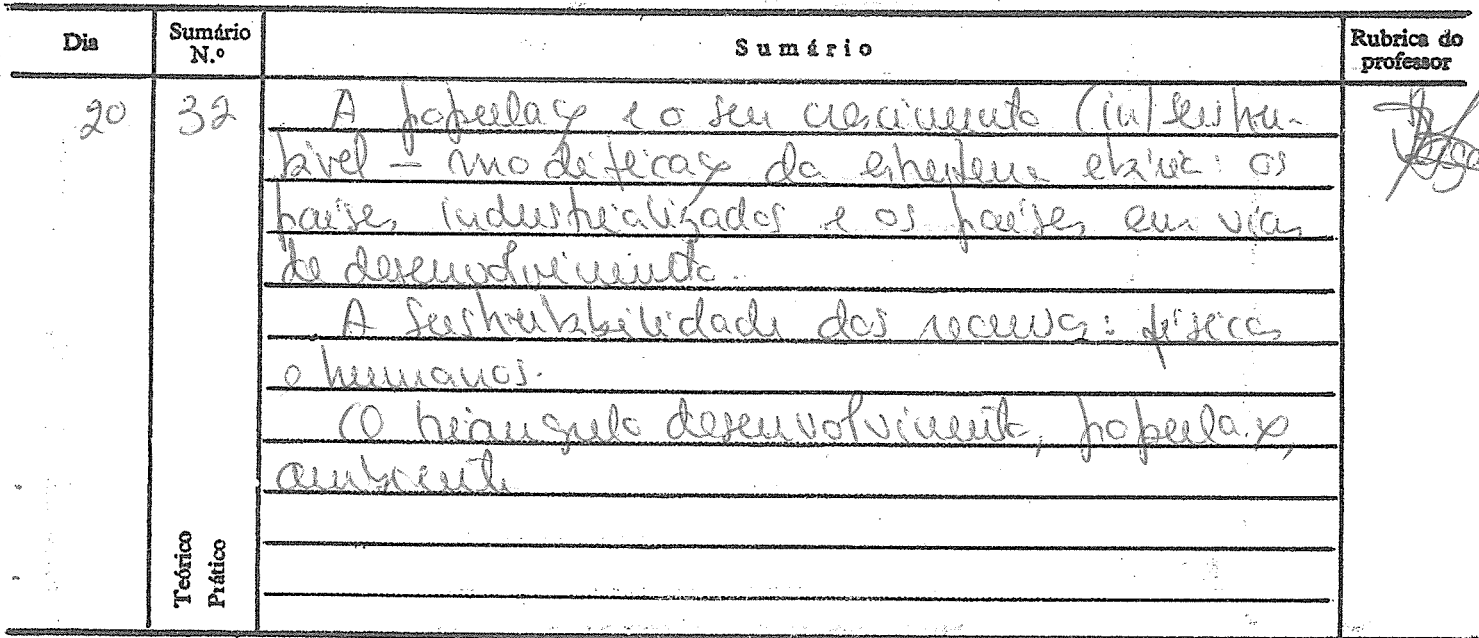 Dia
Sumário N.º
Sumário
Rubrica do professor
20
32
A população e o seu crescimento (in)sustentável – modificação da estrutura etária: os
países industrializados e os países em vias
de desenvolvimento.
A sustentabilidade dos recursos: físicos
e humanos.
O triângulo desenvolvimento, população,
ambiente
Teórico
Prático